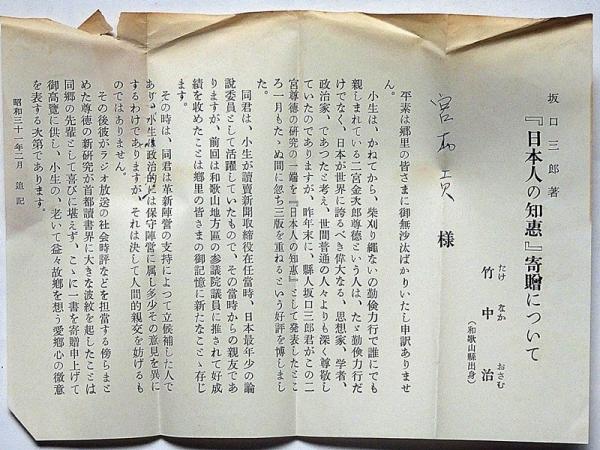 坂口三郎著
『日本人の知惠』寄贈について
竹中治
たけなかおさむ
(和歌山縣出身)
様
平素は郷里の皆さまに御無沙汰ばかりいたし申訳ありませ
ん。
小生は、かねてから、柴刈り縄ないの勤倹力行で誰にでも
親しまれている二宮金次郎尊徳という人は、たゞ勤倹力行だ
けでなく、日本が世界に誇るべき偉大なる、思想家、学者、
政治家、であつたと考え、世間普通の人々よりも深く尊敬し
ていたのでありますが、昨年末に、縣人坂口三郎君がこの二
宮尊徳の研究の一端を『日本人の知惠』として発表したとこ
ろ一月もたゝぬ間に忽ち三版を重ねるという好評を博しまし
た。
同君は、小生が讀賣新聞取締役在任当時、日本最年少の論
説委員として活躍していたもので、その当時からの親友であ
りますが、前回は和歌山地方区の参議院議員に推されて好成
績を收めたことは郷里の皆さまの御記憶に新たなことゝ存じ
ます。
その時は、同君は革新陣営の支持によつて立候補した人で
あり、小生は政治的には保守陣営に属し多少その意見を異に
するわけでありますが、それは決して人間的親交を妨げるも
のではありません。
その後彼がラジオ放送の社会時評などを担当する傍らまと
めた尊徳の新研究が首都讀書界に大きな波紋を起したことは
同郷の先輩として喜びに堪えず、こゝに一書を寄贈申上げて
御高覽に供し、小生の、老いて益々故郷を想う愛郷心の微意
を表する次第であります。
昭和三十一年二月 追記